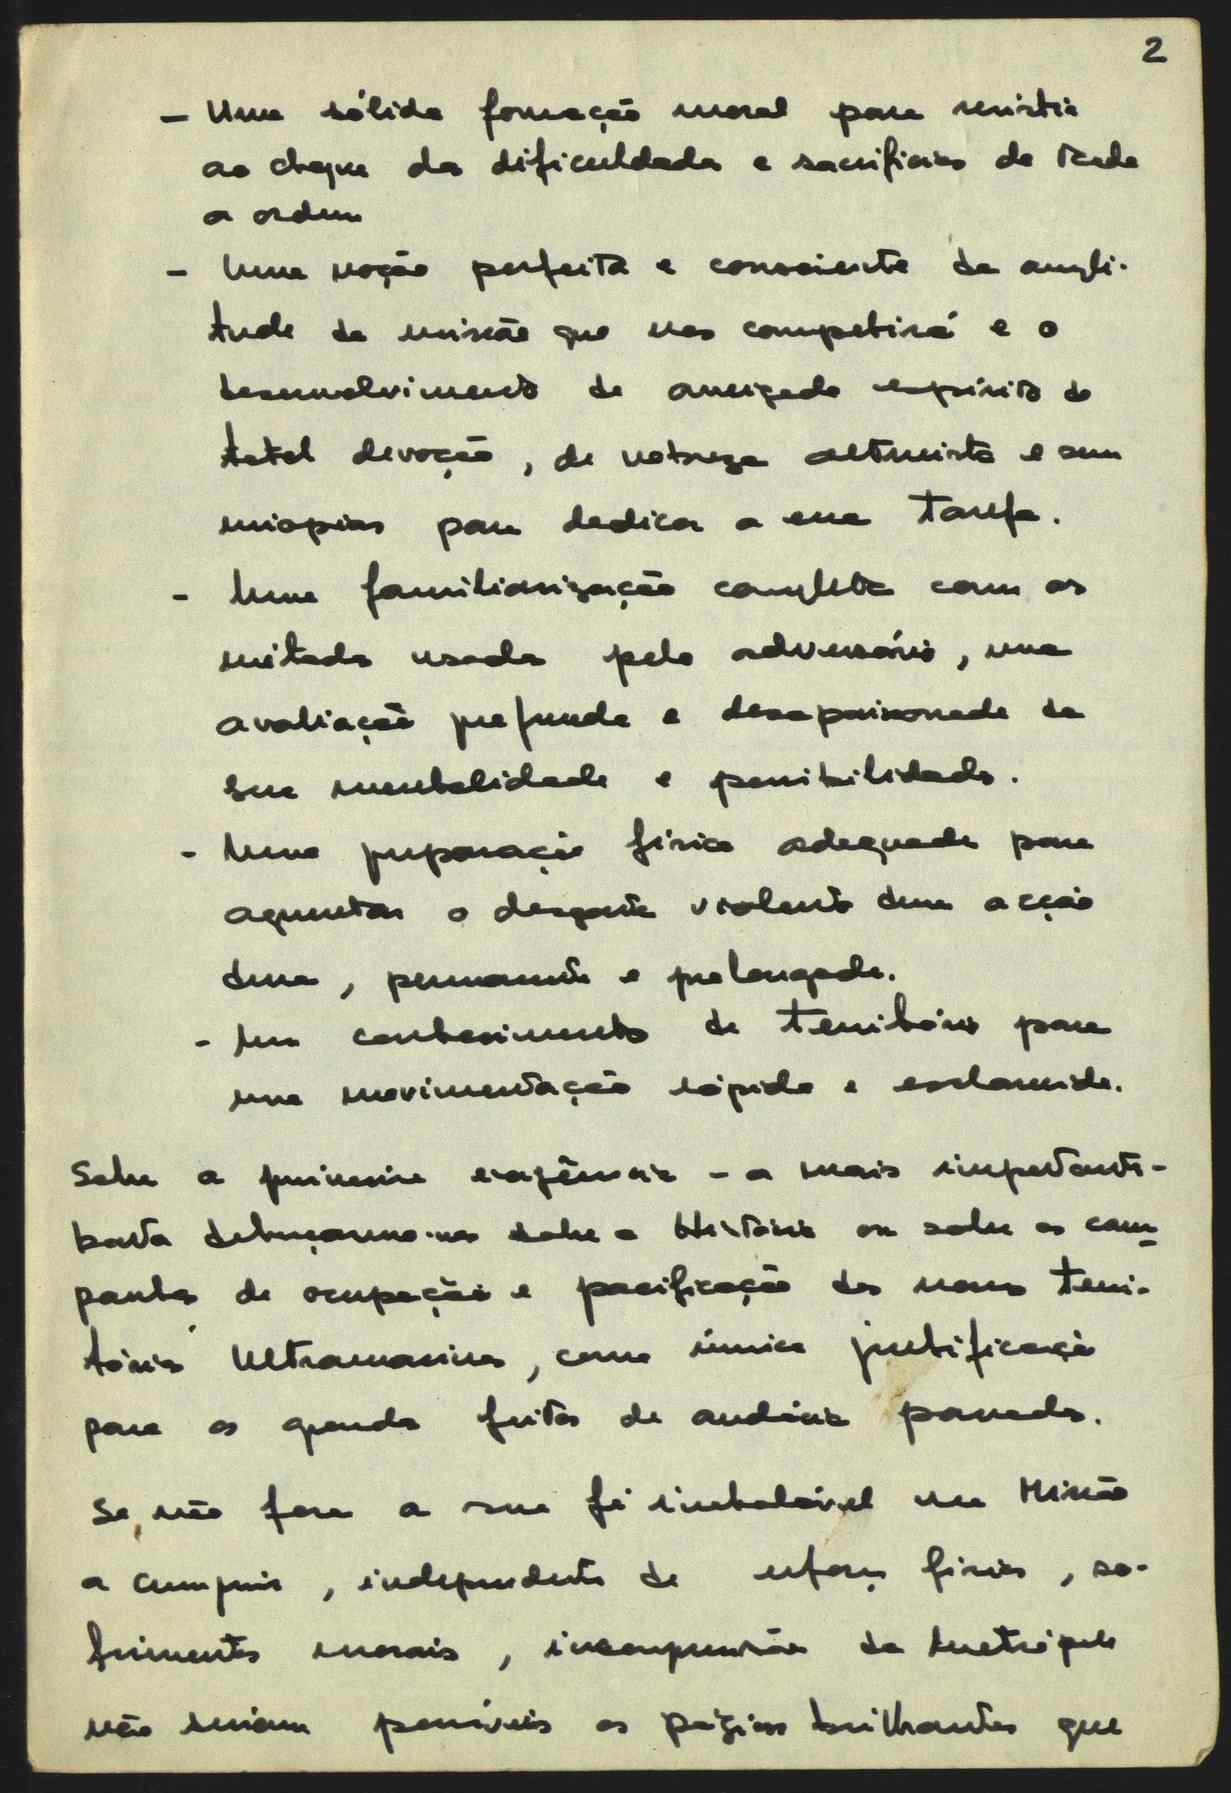 2
- Uma sólida formação moral para resistir
ao choque das dificuldades e sacrifícios de toda
a ordem
- Uma noção perfeita e consciente da ampli-
tude da missão que nos competirá e o
desenvolvimento de arreigado espírito de
total devoção, de natureza altruista e sem
miopias para dedicar a essa tarefa.
- Uma familiarização completa com os
métodos usados pelo adversário, uma
avaliação profunda e desapaixonada da
sua mentalidade e possibilidades.
- Uma preparação física adequada para
aguentar o desgaste violento duma acção
dura, permanente e prolongada.
- Um conhecimento do território para
uma movimentação rápida e esclarecida.
Sobre a primeira exigência - a mais importante -
basta debruçarmo-nos sobre a História ou sobre as cam-
panhas de ocupação e pacificação dos nossos terri-
tórios Ultramarinos, como única justificação
para os grandes feitos de audácia passados.
Se não fora a sua fé inabalável na Missão
a cumprir, independente de esforço físico, so-
frimentos morais, incompreensão da Metrópole
não seriam possíveis as páginas brilhantes que